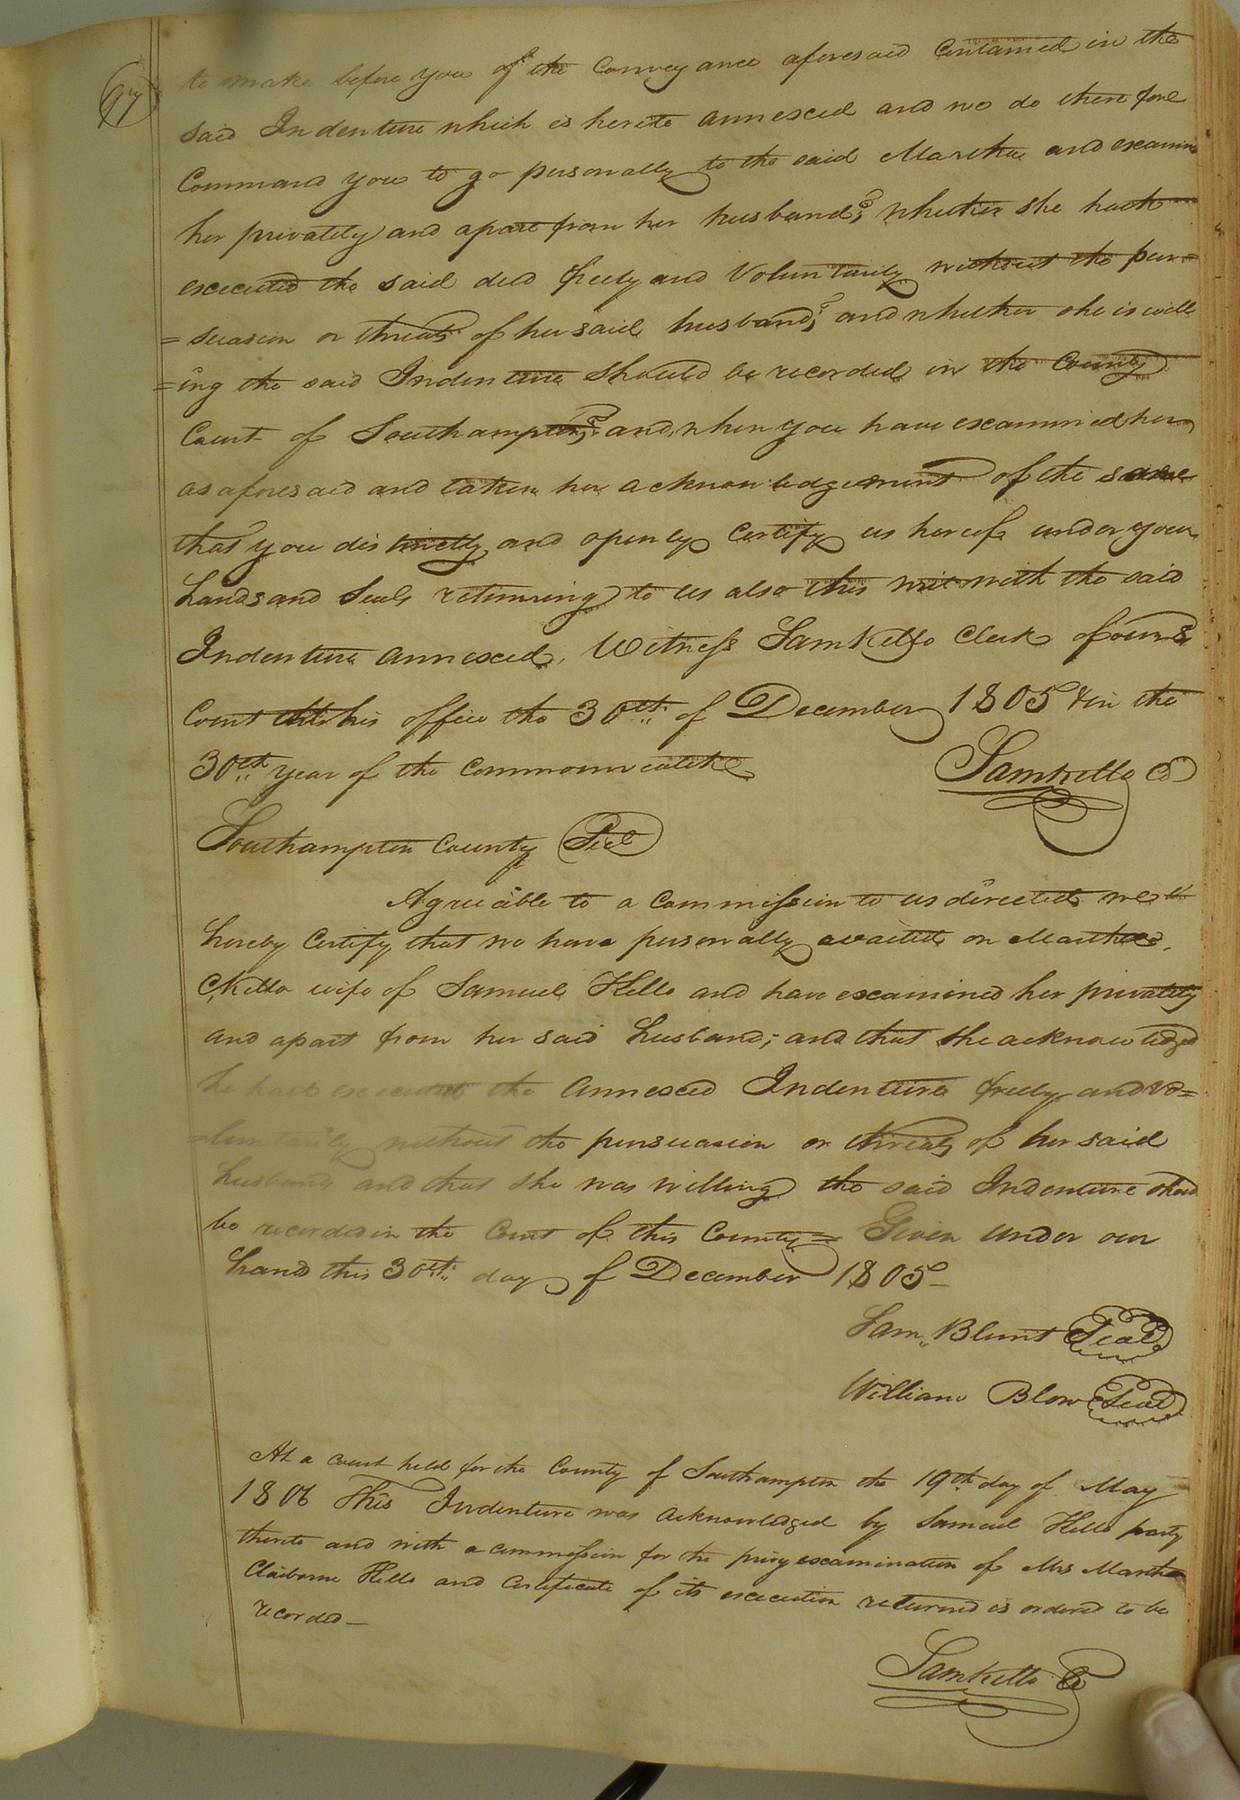 97
to make before you of the Conveyance aforesaid Contained in the
said Indenture which is hereto annexed and we do therefore
Command you to go personally to the said Martha and examine
her privately and apart from her husband, whether she hath
executed the said deed freely and Voluntarily without the pur=
=suasion or threats of her said husband, and whether she is will
=ing the said Indenture should be recorded in the County
Court of Southampton; and when you have examined her
as aforesaid and taken her acknowledgement of the same
that you distinctly and openly Certify us hereof under your
hands and Seals returning to us also this writ with the said
Indenture annexed. Witness Saml Kello Clerk of our sd
Court at his office the 30th of December 1805 & in the
30th year of the Commonwealth
Saml Kello CC
Southampton County Sct
Agreeable to a Commission to us directed we do
hereby Certify that we have personally waited on Martha
C. Kello wife of Samuel Kello and have examined her privately
and apart from her said husband; and that she acknowledged
he had executed the annexed Indenture freely and vo=
=luntarily without the pursuasion or threats of her said
husband and that she was willing the said Indenture shoud
be recorded in the Court of this County = Given under our
hand this 30th day of December 1805
Sam,, Blunt Seal
William Blow Seal
At a court held for the County of Southampton the 19th day of May
1806 This Indenture was acknowledged by Samuel Kello party
thereto and with a commission for the privy examination of Mrs Martha
Claiborne Kello and Certificate of its execution returned is ordered to be
recorded
Saml Kello CC